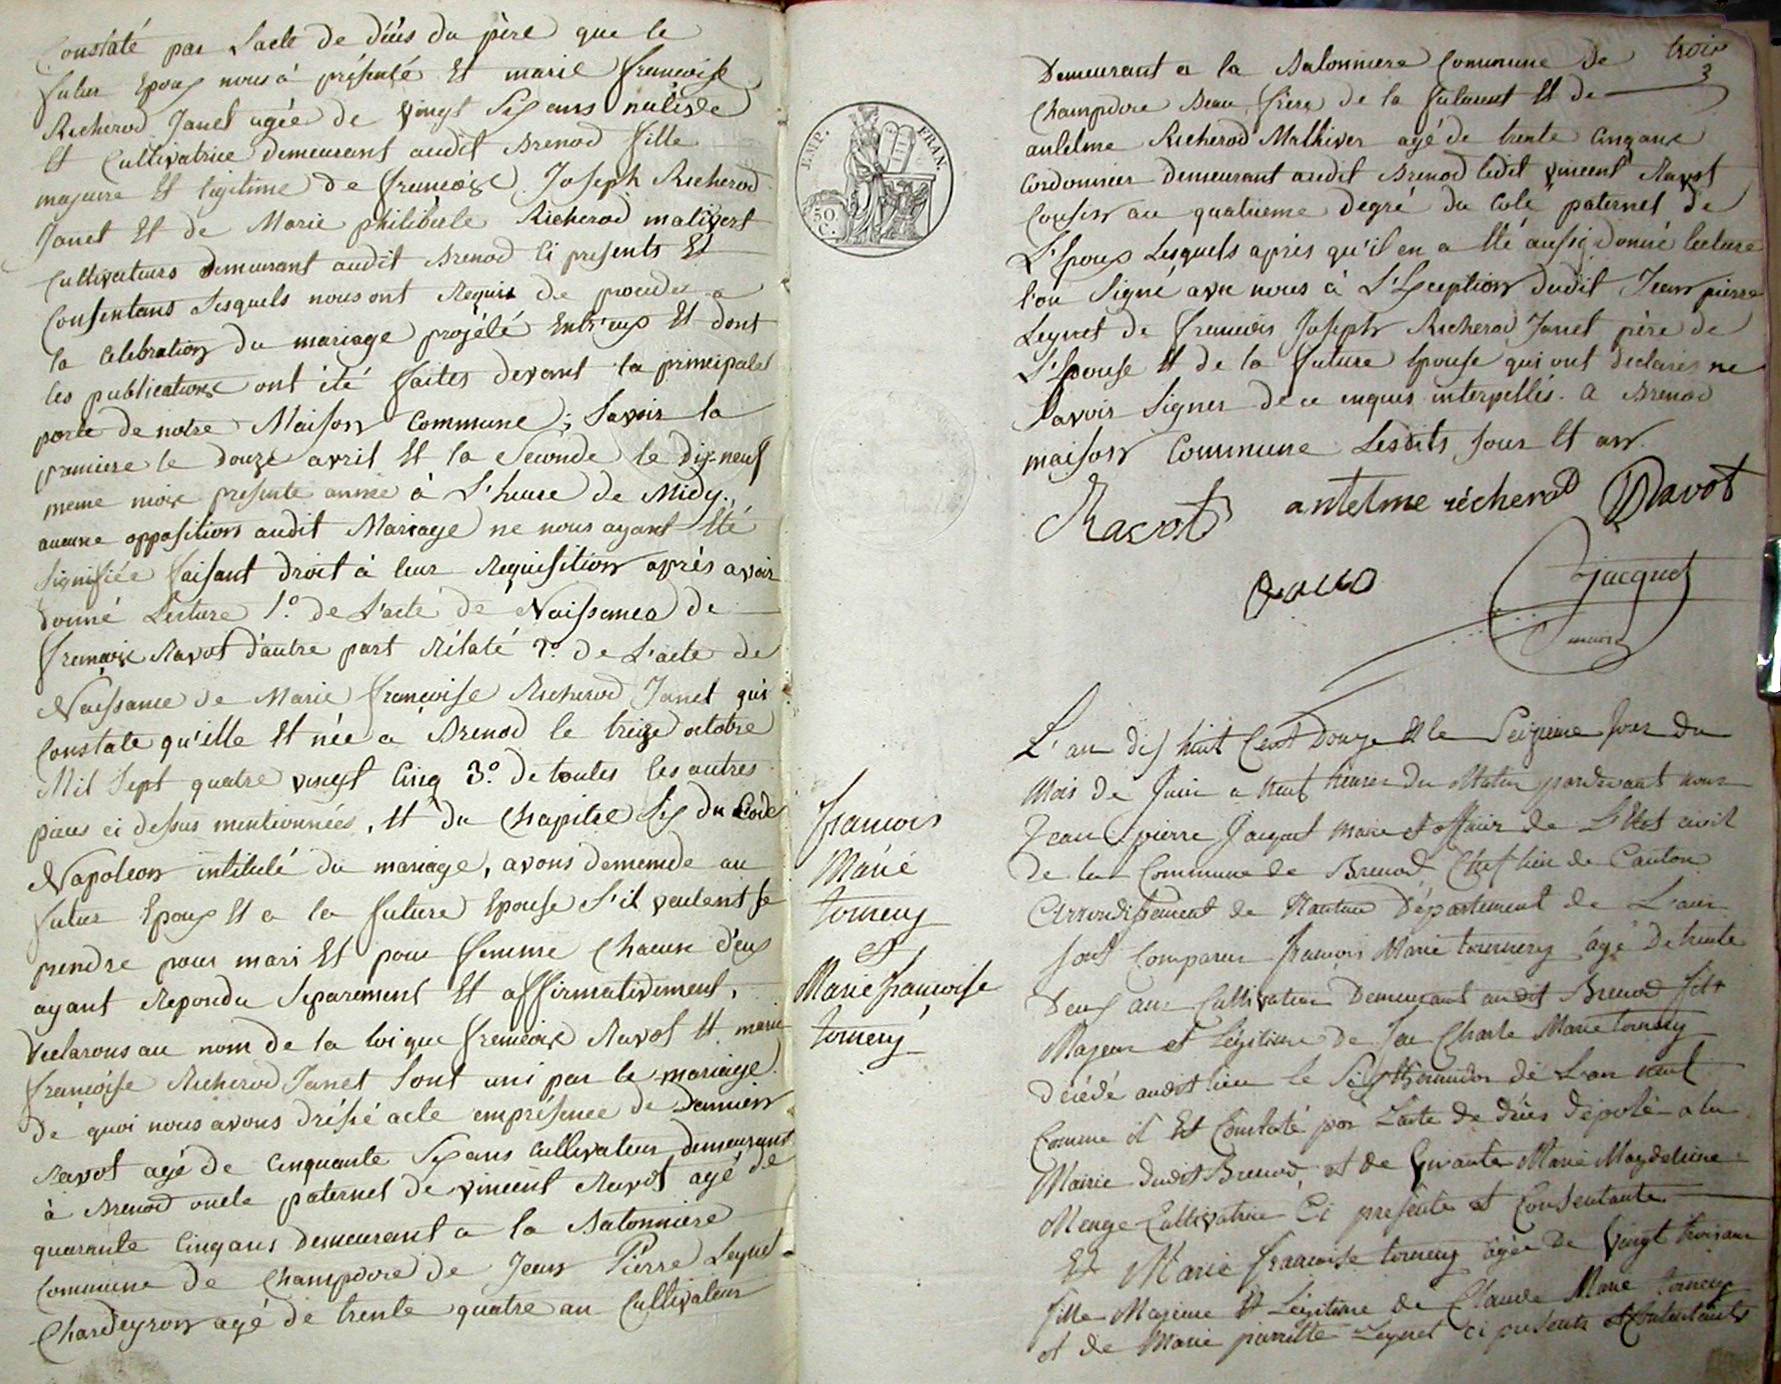 Constaté par Lacte de décès du père que le
futur Epoux nous à présenté Et marie françoise
Richerod Janet agée de vingt Six ans native
Et Cultivatrice demeurant audit Brenod fille
majeure Et légitime de françois Joseph Richerod
Janet Et de Marie philiberte Richerod mativert
Cultivateurs demeurant audit Brenod Ci présents Et
Consentans Lesquels nous ont Requis de proceder a
la Célébration du mariage projété Entr'eux Et dont
les publications ont été faites devant la principale
porte de notre Maison Commune; Savoir la
premiere le douze avril Et la Seconde le dix-neuf
meme mois présente année à L'heure de Midy,
aucune opposition audit Mariage ne nous ayant Eté
Signifiée faisant droit à leur Réquisition après avoir
donné Lecture 1.° de L'acte de Naissance de
françois Ravot d'autre part Rélaté 2.° de L'acte de
Naissance de Marie françoise Richerod Janet qui
Constate qu'elle Et née a Brenod le treize octobre
Mil Sept quatre vingt Cinq 3.° de toutes les autres
pièces ci dessus mentionnées, Et du Chapitre Six du Code
Napoléon intitulé du mariage, avons demande au
futur Epoux Et a la future Epouse S'il veulent se
prendre pour mari Et pour femme Chacun d'eux
ayant Repondu Séparement Et affirmativement,
déclarons au nom de la loi que françois Ravot Et marie
françoise Richerod Janet Sont uni par le mariage
De quoi nous avons dréssé acte emprésence de
Ravot agé de Cinquante Six ans Cultivateur demeurant
à Brenod oncle paternel de vincent Ravot agé de
quarante Cinq ans demeurant a la Batonniere
Commune de Champdore de Jean Pierre Leynet
Chardeyron agé de trente quatre an Cultivateur
trois
3
EMP. FRAN.
50 C.
Demeurant a la Balonniere Commune de
Champdore Beau frère de la future Et de
antelme Richerod Mathiver agé de trente Cinq ans
Cordonnier demeurant audit Brenod ledit vincent Ravot
Cousin au quatrieme degré du Coté paternel de
L'Epoux Lesquels après qu'il en a Eté aussi donné lecture
l'on Signé avec nous à L'Exception dudit Jean pierre
Leynet de francois Joseph Richerod Janet père de
L'Epouse Et de la future Epouse qui ont declarés ne
Savoir Signer de ce enquis interpellés. a Brenod
maison Commune Lesdits Jour Et an
Ravot antelme richerod Ravot
Jacquet
maire
L'an dix huit Cent Douze Et le Seizieme Jour du
Mois de Juin a Neuf heures Du Matin pardevant nous
Jean pierre Jacquet Maire et officier de L'Etat civil
de la Commune de Brenod Chef lieu de Canton
Arrondissement de Nantua Département de L'ain
Sont Comparus françois Marie tournery agé De trente
Deux ans Cultivateur Demeurant audit Brenod fils
Majeur et Légitime de feu Charle Marie tourney
décédé audit lieu le Six thermidor de L'an neuf
Comme il Et Constaté par L'acte de décès déposé a la
Mairie dudit Brenod, et de vivante Marie Magdeleine
Menge Cultivatrice Ci presente et Consentante
Et Marie francoise tourney agée De Vingt trois ans
fille Majeure Et Légitime de Claude Marie tourney
et de Marie pierrette Leynet ci presents et Consentants
francois
Marie
tourney
et
Marie francoise
tourney